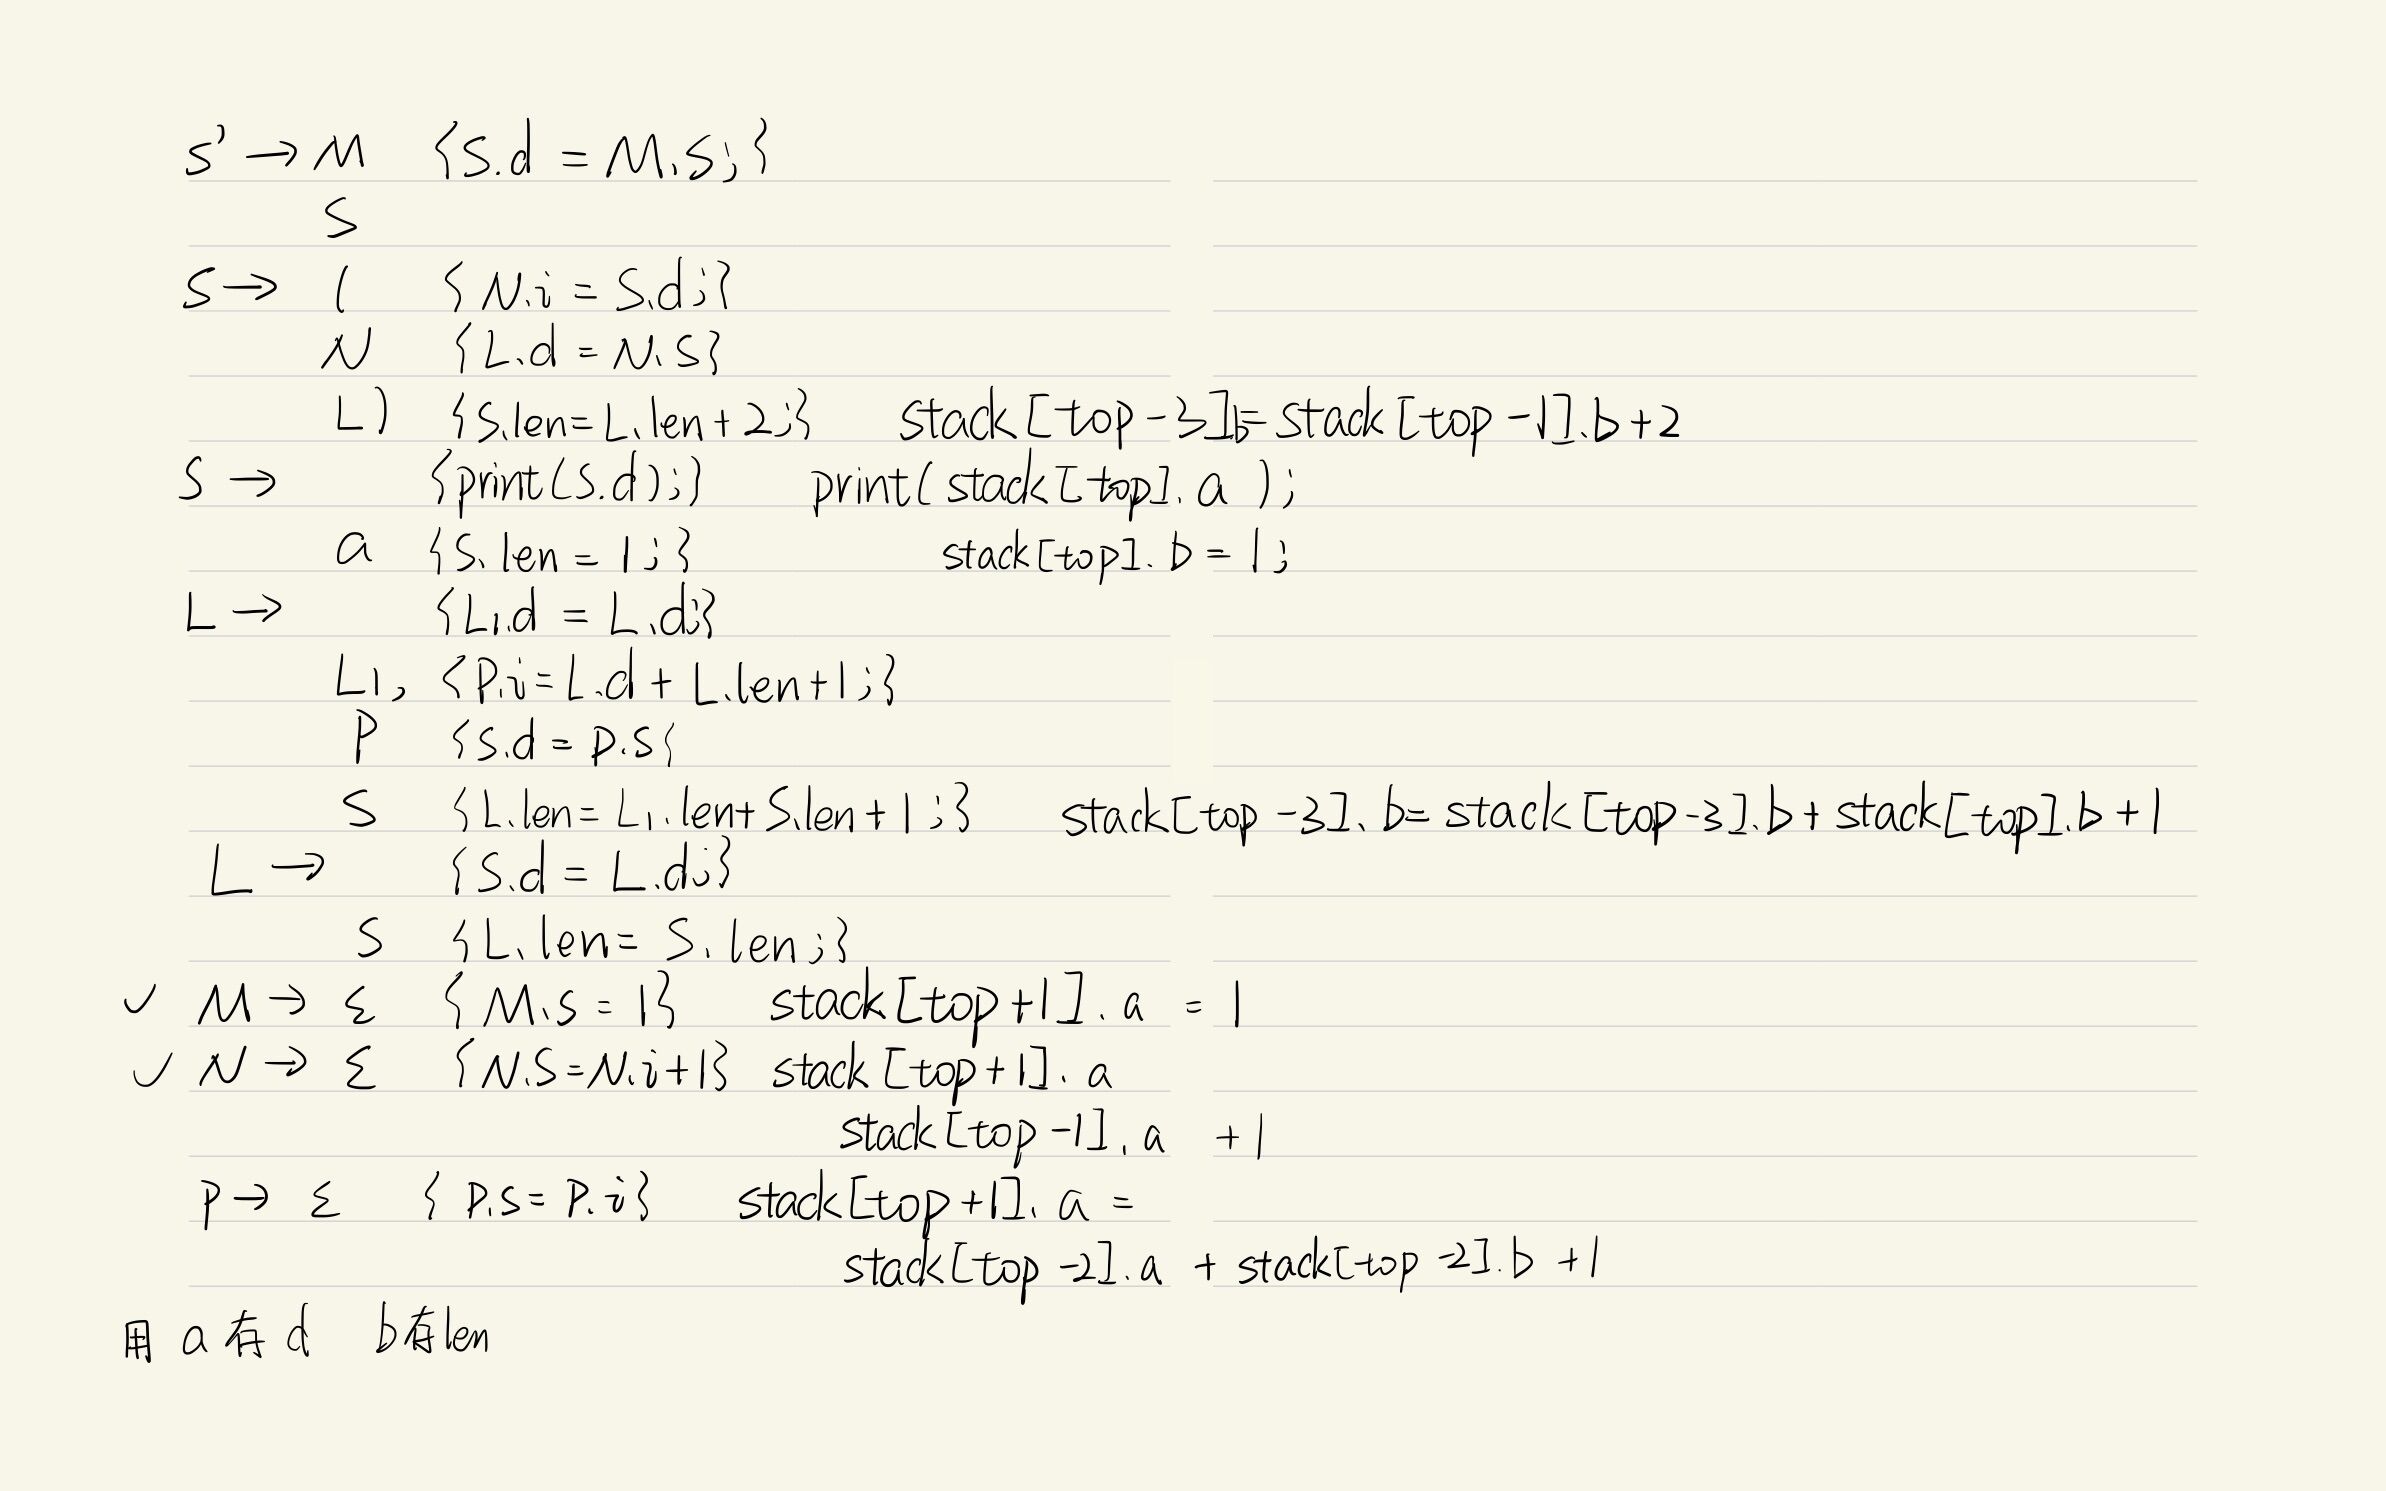 S' → M {S.d = M.s;}
S
S → ( {N.i = S.d;}
N {L.d = N.s}
L) {S.len=L.len+2;} stack[top-3].b=stack[top-1].b+2
S → {print(S.d);} print(stack[top].a );
a {S.len = 1;} stack[top].b = 1;
L → {L1.d = L.d;}
L1, {P.i=L.d + L.len+1;}
P {S.d = P.s{
S {L.len= L1.len+S.len+1;} stack[top-3].b= stack[top-3].b+stack[top].b+1
L → {S.d = L.d;}
S {L.len= S.len;}
✓ M → ε {M.s = 1} stack[top+1].a = 1
✓ N → ε {N.S=N.i+1} stack[top+1].a
stack[top-1].a +1
P → ε {P.s= P.i} stack[top+1].a =
stack[top-2].a + stack[top-2].b +1
用 a 存 d b存len